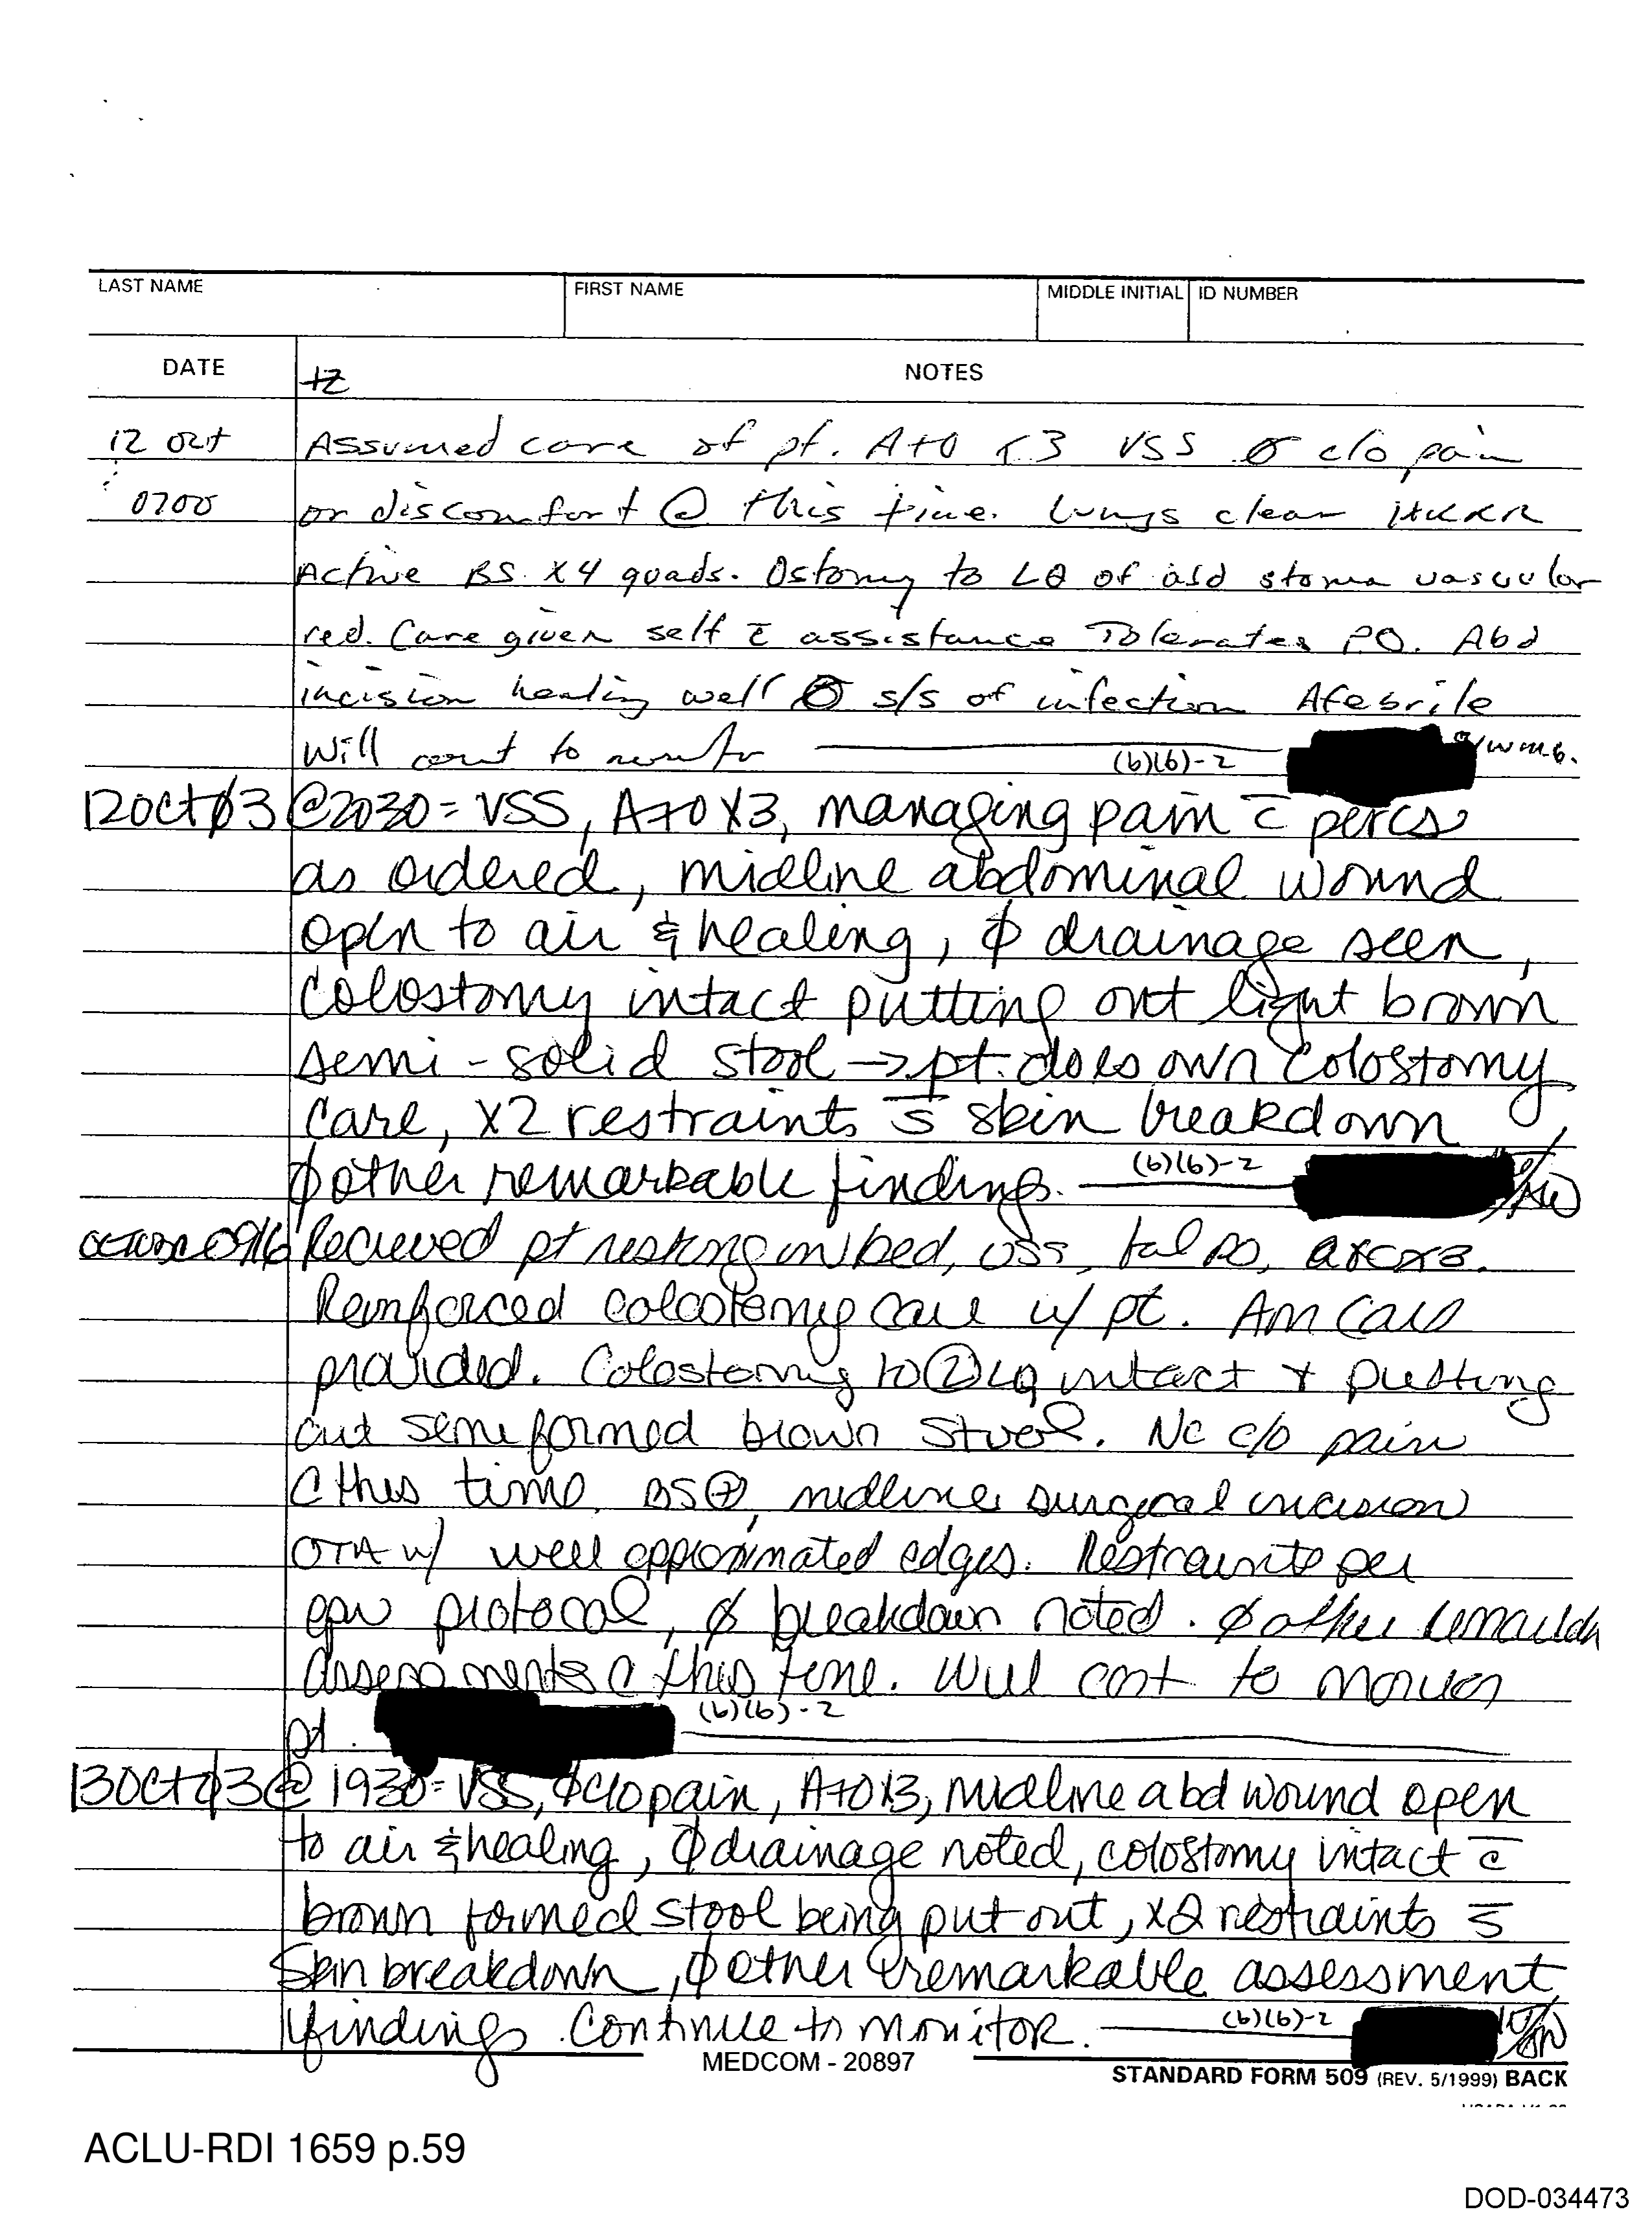 LAST NAME FIRST NAME MIDDLE INITIAL ID NUMBER
DATE NOTES
12 Oct Assumed care of pt. A+O x3 VSS Ø c/o pain
0700 or discomfort @ this time. Lungs clear
Active BS X4 quads. Ostomy to LQ of abd stoma vascular
red. Care given self c̅ assistance Tolerates PO. Abd
incision healing well Ø s/s of infection Afebrile
Will cont to monitor
(b)(6)-2
12Oct03 @2030= VSS, A+OX3, managing pain c̅ percs
as ordered, midline abdominal wound
open to air & healing, Ø drainage seen,
Colostomy intact putting out light brown
semi-solid stool → pt. does own colostomy
care, X2 restraints s̅ skin breakdown
Ø other remarkable findings. (b)(6)-2
0916 Recieved pt resting in bed, VSS, tol PO, a&ox3.
Reinforced colostomy care w/ pt. Am care
provided. Colostomy to LQ intact + putting
out semi formed brown stool. No c/o pain
@ this time. BS⊕, midline surgical incision
OTA w/ well approximated edges. Restraints per
epw protocol, Ø breakdown noted. Ø other
assessments @ this time. Will cont to monitor
pt. (b)(6)-2
13Oct03 @ 1930= VSS, Ø c/o pain, A+OX3, midline abd wound open
to air & healing, Ø drainage noted, colostomy intact c̅
brown formed stool being put out, x2 restraints s̅
Skin breakdown, Ø other remarkable assessment
findings. Continue to monitor. (b)(6)-2
MEDCOM - 20897
STANDARD FORM 509 (REV. 5/1999) BACK
ACLU-RDI 1659 p.59
DOD-034473